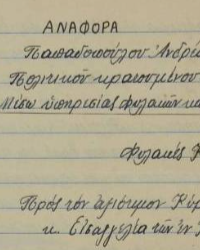 ΑΝΑΦΟΡΑ
Παπαδοπούλου Ἀνδρέ
Πολιτικοῦ κρατουμένου
Μέσω ὑπηρεσίας Φυλακῶν κα
Φυλακές
Πρός τόν ἀξιότιμον Κύρ
κ. Εἰσαγγελέα τῶν ἐν